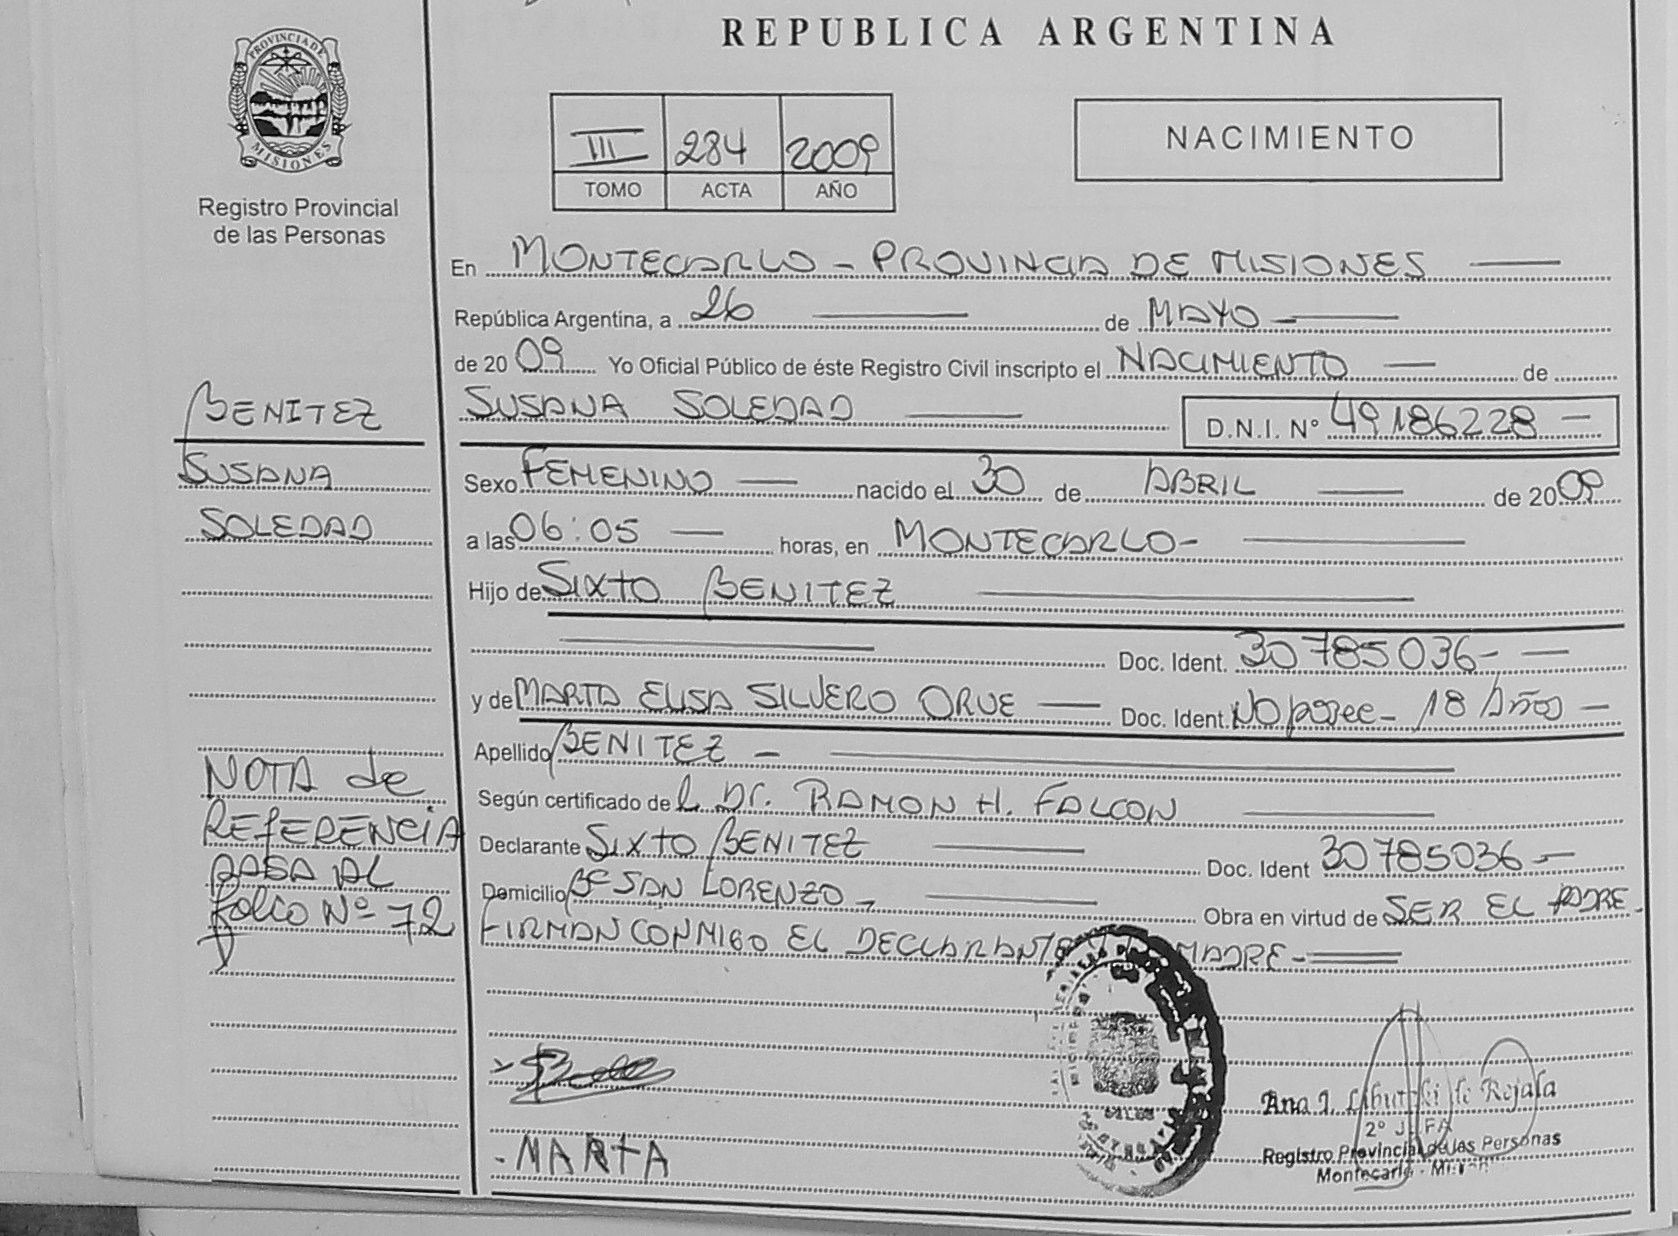 REPUBLICA ARGENTINA
PROVINCIA DE
MISIONES
Registro Provincial
de las Personas
III 284 2009
TOMO ACTA AÑO
NACIMIENTO
En MONTECARLO - PROVINCIA DE MISIONES
República Argentina, a 26 de MAYO
de 2009 Yo Oficial Público de éste Registro Civil inscripto el NACIMIENTO de
SUSANA SOLEDAD D.N.I. Nº 49186228
Sexo FEMENINO nacido el 30 de ABRIL de 2009
a las 06:05 horas, en MONTECARLO-
Hijo de SIXTO BENITEZ
Doc. Ident. 30785036-
y de MARTA ELISA SILVERO ORUE Doc. Ident. No posee- 18 Años
Apellido BENITEZ
Según certificado del Dr. RAMON H. FALCON
Declarante SIXTO BENITEZ Doc. Ident 30785036
Domicilio Bº SAN LORENZO, Obra en virtud de SER EL PADRE
FIRMAN CONMIGO EL DECLARANTE MADRE-
BENITEZ
SUSANA
SOLEDAD
NOTA de
REFERENCIA
PASA AL
folio Nº 72
-MARTA
Ana de Rojala
2º JEFA
Registro Provincial de las Personas
Montecarlo - Mi